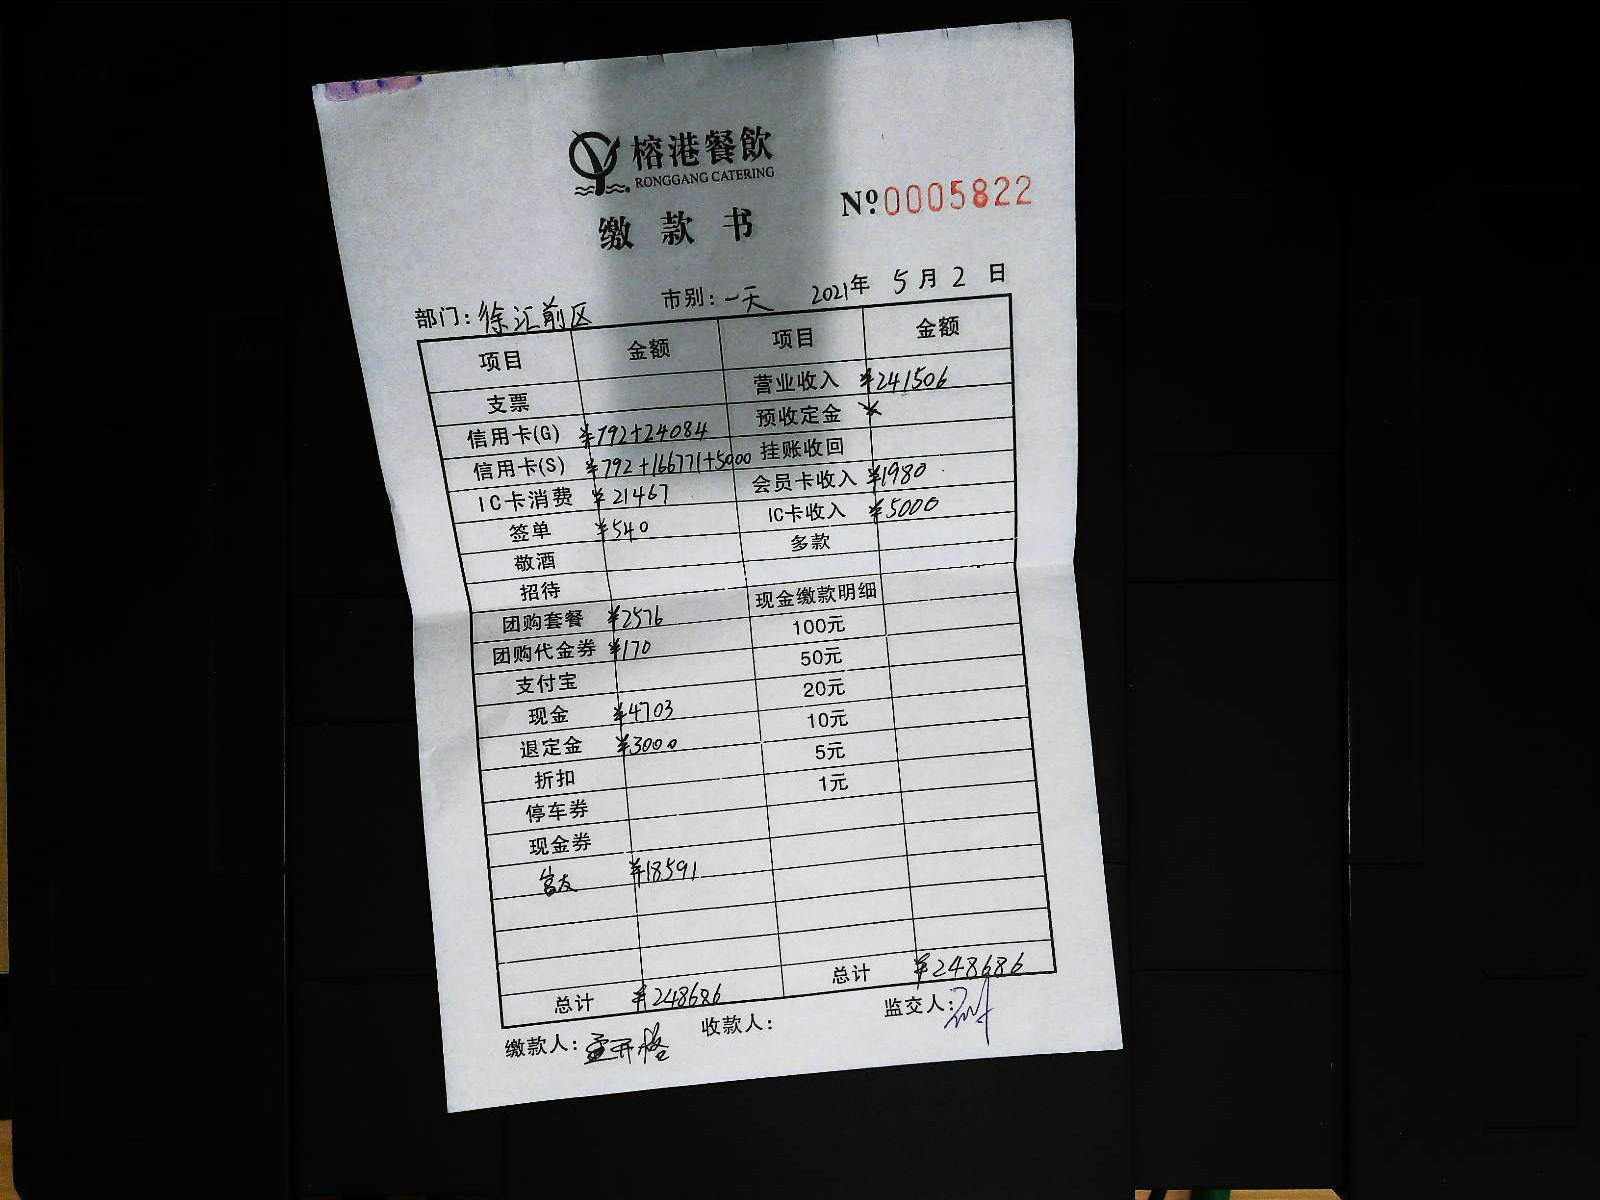 榕港餐飲
RONGGANG CATERING
缴款书
Nº 0005822
部门: 徐汇前区 市别: 一天 2021年 5月 2日
项目 金额 项目 金额
支票 营业收入 ¥241506
信用卡(G) ¥792+24084 预收定金
信用卡(S) ¥792+166771+5000 挂账收回
IC卡消费 ¥21467 会员卡收入 ¥1980
签单 ¥540 IC卡收入 ¥5000
敬酒 多款
招待
团购套餐 ¥2576 现金缴款明细
团购代金券 ¥170 100元
支付宝 50元
现金 ¥4703 20元
退定金 ¥3000 10元
折扣 5元
停车券 1元
现金券
¥18591
总计 ¥248686 总计 ¥248686
缴款人: 收款人: 监交人: